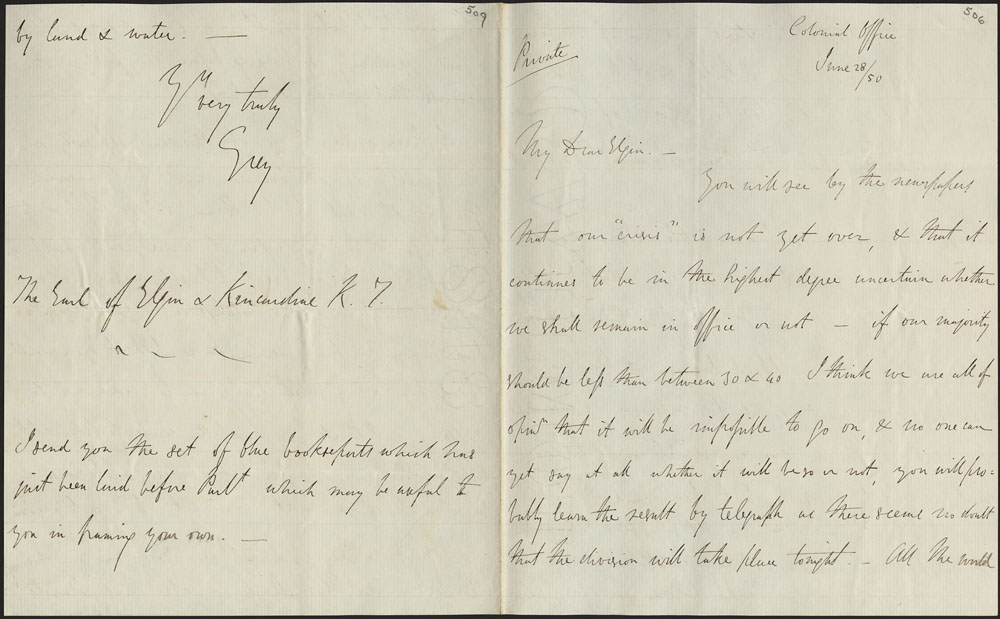 509
by land & water. —
Yrs
very truly
Grey
The Earl of Elgin & Kincardine K. T.
I send you the set of blue book reports which has
just been laid before Parlt which may be useful to
you in framing your own. —
506
Colonial Office
June 28/50
Private
My Dear Elgin. —
You will see by the newspapers
that our "crisis" is not yet over, & that it
continues to be in the highest degree uncertain whether
we shall remain in office or not — if our majority
should be less than between 30 & 40 I think we are all of
opinn that it will be impossible to go on, & no one can
yet say at all whether it will be so or not, you will pro=
bably learn the result by telegraph as there seems no doubt
that the division will take place tonight. — All the world